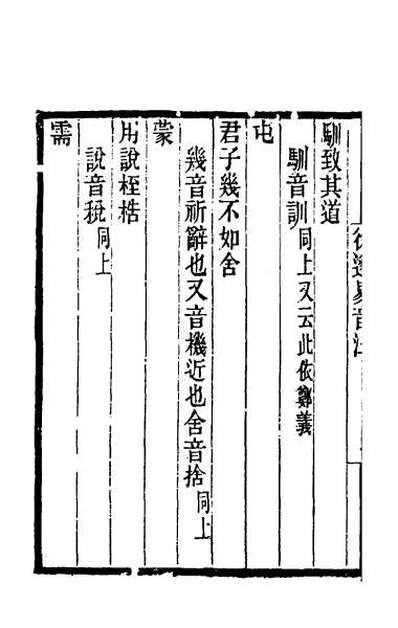 徐邈易音注
馴致其道
馴音訓同上又云此依鄭義
屯
君子幾不如舍
幾音祈辭也又音機近也舍音捨同上
蒙
用說桎梏
說音稅同上
需